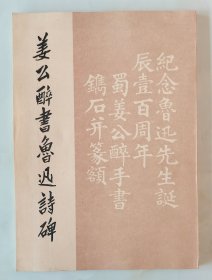 姜公醉書魯迅詩碑
紀念魯迅先生誕
辰壹百周年
蜀姜公醉手書
鐫石并篆額